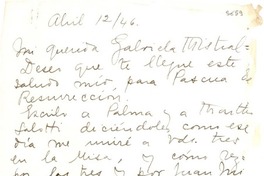 Abril 12/46.
3059
Mi querida Gabriela Mistral -
Deseo que te llegue este
saludo mío, para Pascua de
Resurrección.
Escribo a Palma y a Martha
Salotti diciéndoles como ese
día me uniré a Vds. tres
en la Misa, y como rezo
por las tres y por Juan Mi